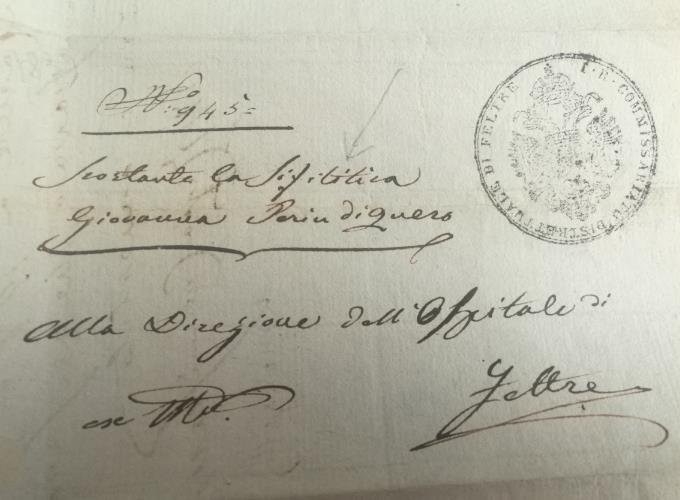 No. 945=
Scortante la Sifilitica
Giovanna Perin di Quero
Alla Direzione dell'Ospitale di
Feltre
ex Mo.
I. R. COMMISSARIATO DISTRETTUALE DI FELTRE